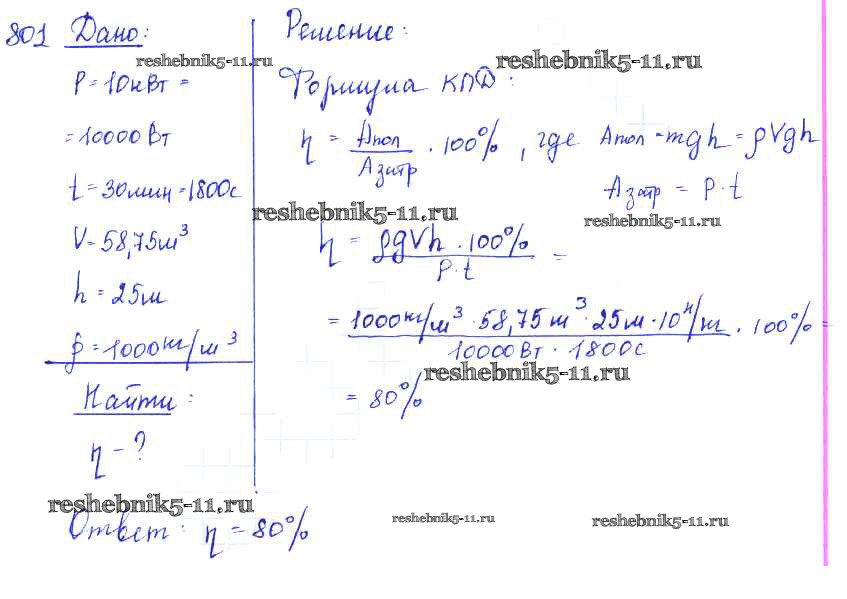 801 Дано:
reshebnik5-11.ru
P = 10кВт =
= 10000 Вт
t = 30мин = 1800с
V = 58,75м³
h = 25м
ρ = 1000кг/м³
Найти:
η - ?
reshebnik5-11.ru
Решение:
reshebnik5-11.ru
Формула КПД:
η = Aпол / Aзатр · 100%, где Aпол = mgh = ρVgh
Aзатр = P·t
reshebnik5-11.ru
reshebnik5-11.ru
η = ρgVh · 100% / P·t =
= 1000кг/м³ · 58,75м³ · 25м · 10н/кг / 10000Вт · 1800с · 100% =
reshebnik5-11.ru
= 80%
Ответ: η = 80%
reshebnik5-11.ru
reshebnik5-11.ru